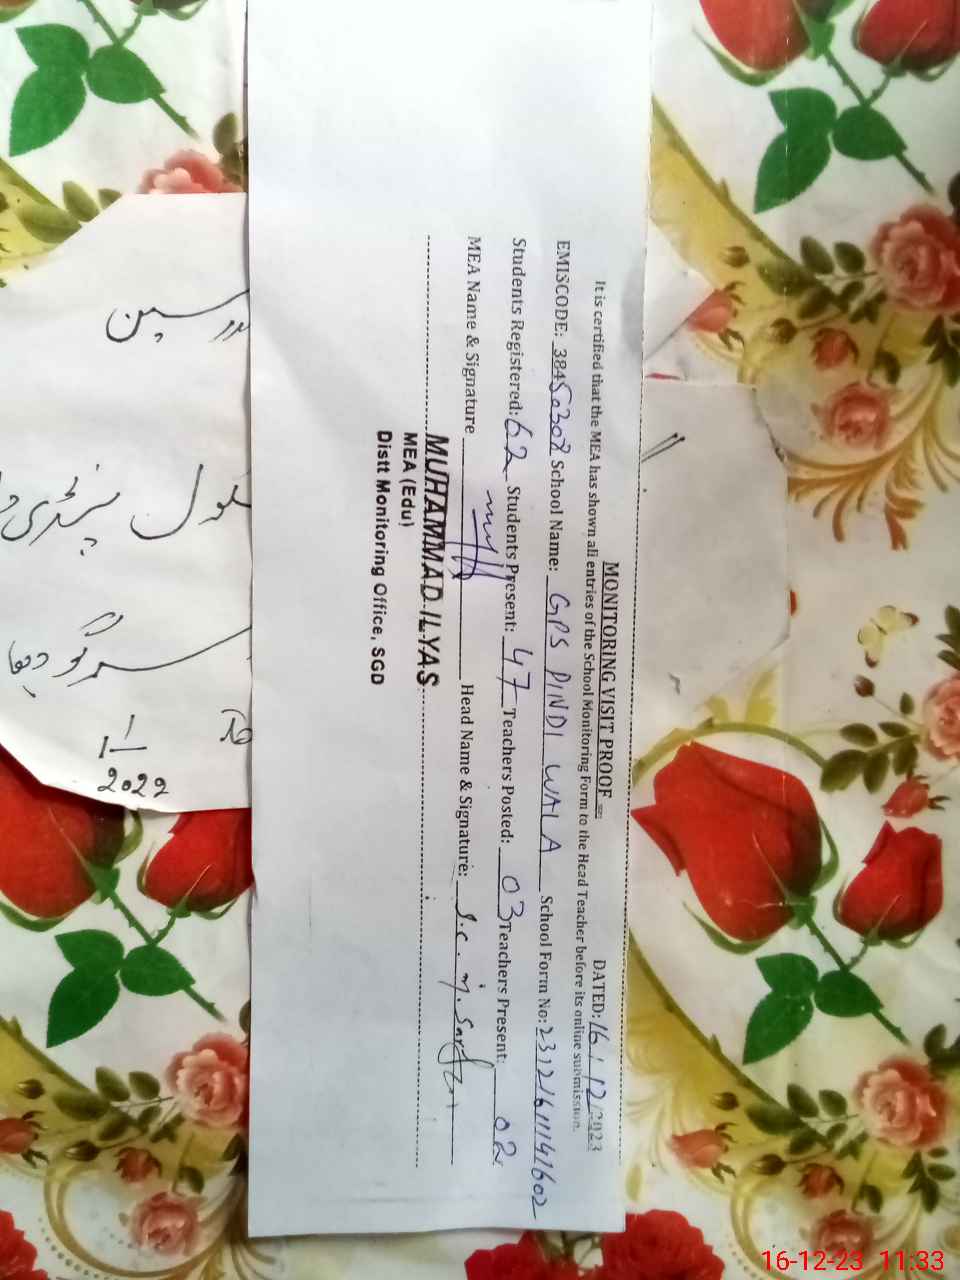 MONITORING VISIT PROOF
DATED: 16/12/2023
It is certified that the MEA has shown all entries of the School Monitoring Form to the Head Teacher before its online submission.
EMISCODE: 38450308 School Name: GPS PINDI WALA School Form No: 231216111141602
Students Registered: 62 Students Present: 47 Teachers Posted: 03 Teachers Present: 02
MEA Name & Signature Head Name & Signature:
MUHAMMAD ILYAS
MEA (Edu)
Distt Monitoring Office, SGD
سکول
سرگودھا
1/1
2022
16-12-23 11:33